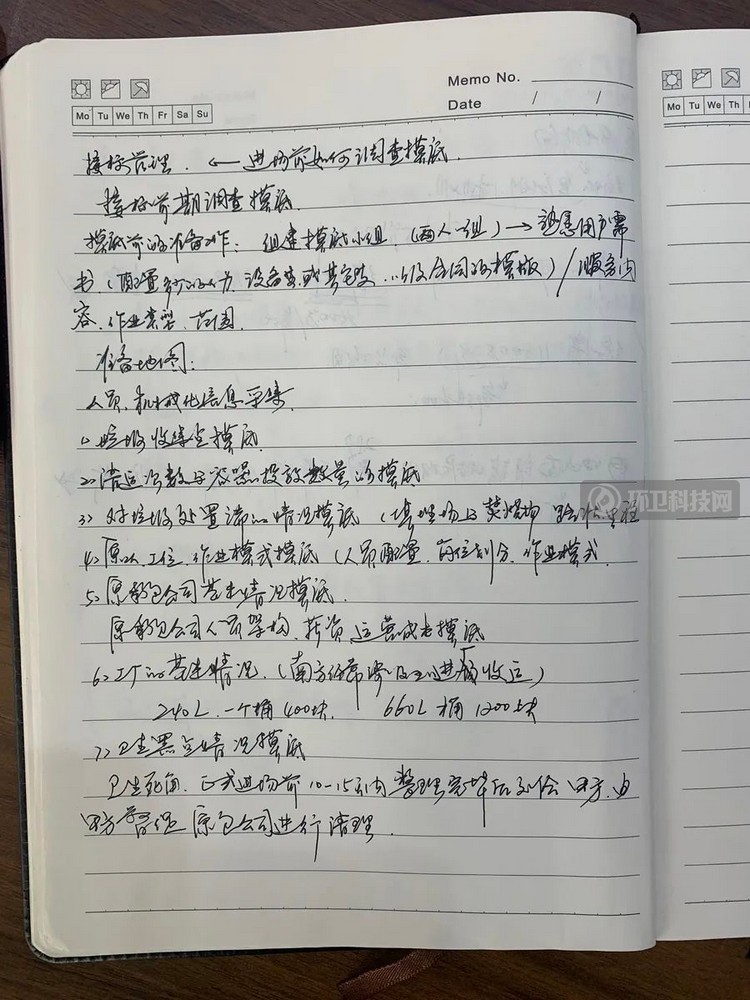 Memo No.
Date / /
Mo Tu We Th Fr Sa Su
Mo Tu We Th
接标管理. ← 进场前如何调查摸底.
接标前期调查摸底.
摸底前的准备工作: 组建摸底小组. (两人一组) → 熟悉用户需
书. (配置多少人力, 设备类或其它类, 以及合同的模版) / 服务内
容. 作业类型、范围.
准备地图:
人员, 机械化信息采集.
1> 垃圾收集至摸底.
2> 清运次数与容器投放数量的摸底
3> 对垃圾处置端的情况摸底 (填埋场与焚烧场
环卫科技网
4> 原人工位、作业模式摸底 (人员配置、岗位划分、作业模式.
5> 原承包公司基本情况摸底.
原承包公司人员架构、薪资运营成本摸底
6> 工厂的基本情况. (南方经常涉及工厂进桶收运)
240L. 一个桶400块. 660L桶 1200块
7> 卫生黑点情况摸底
卫生死角. 正式进场前10-15天内整理完毕后交给甲方. 由
甲方督促原包公司进行清理.